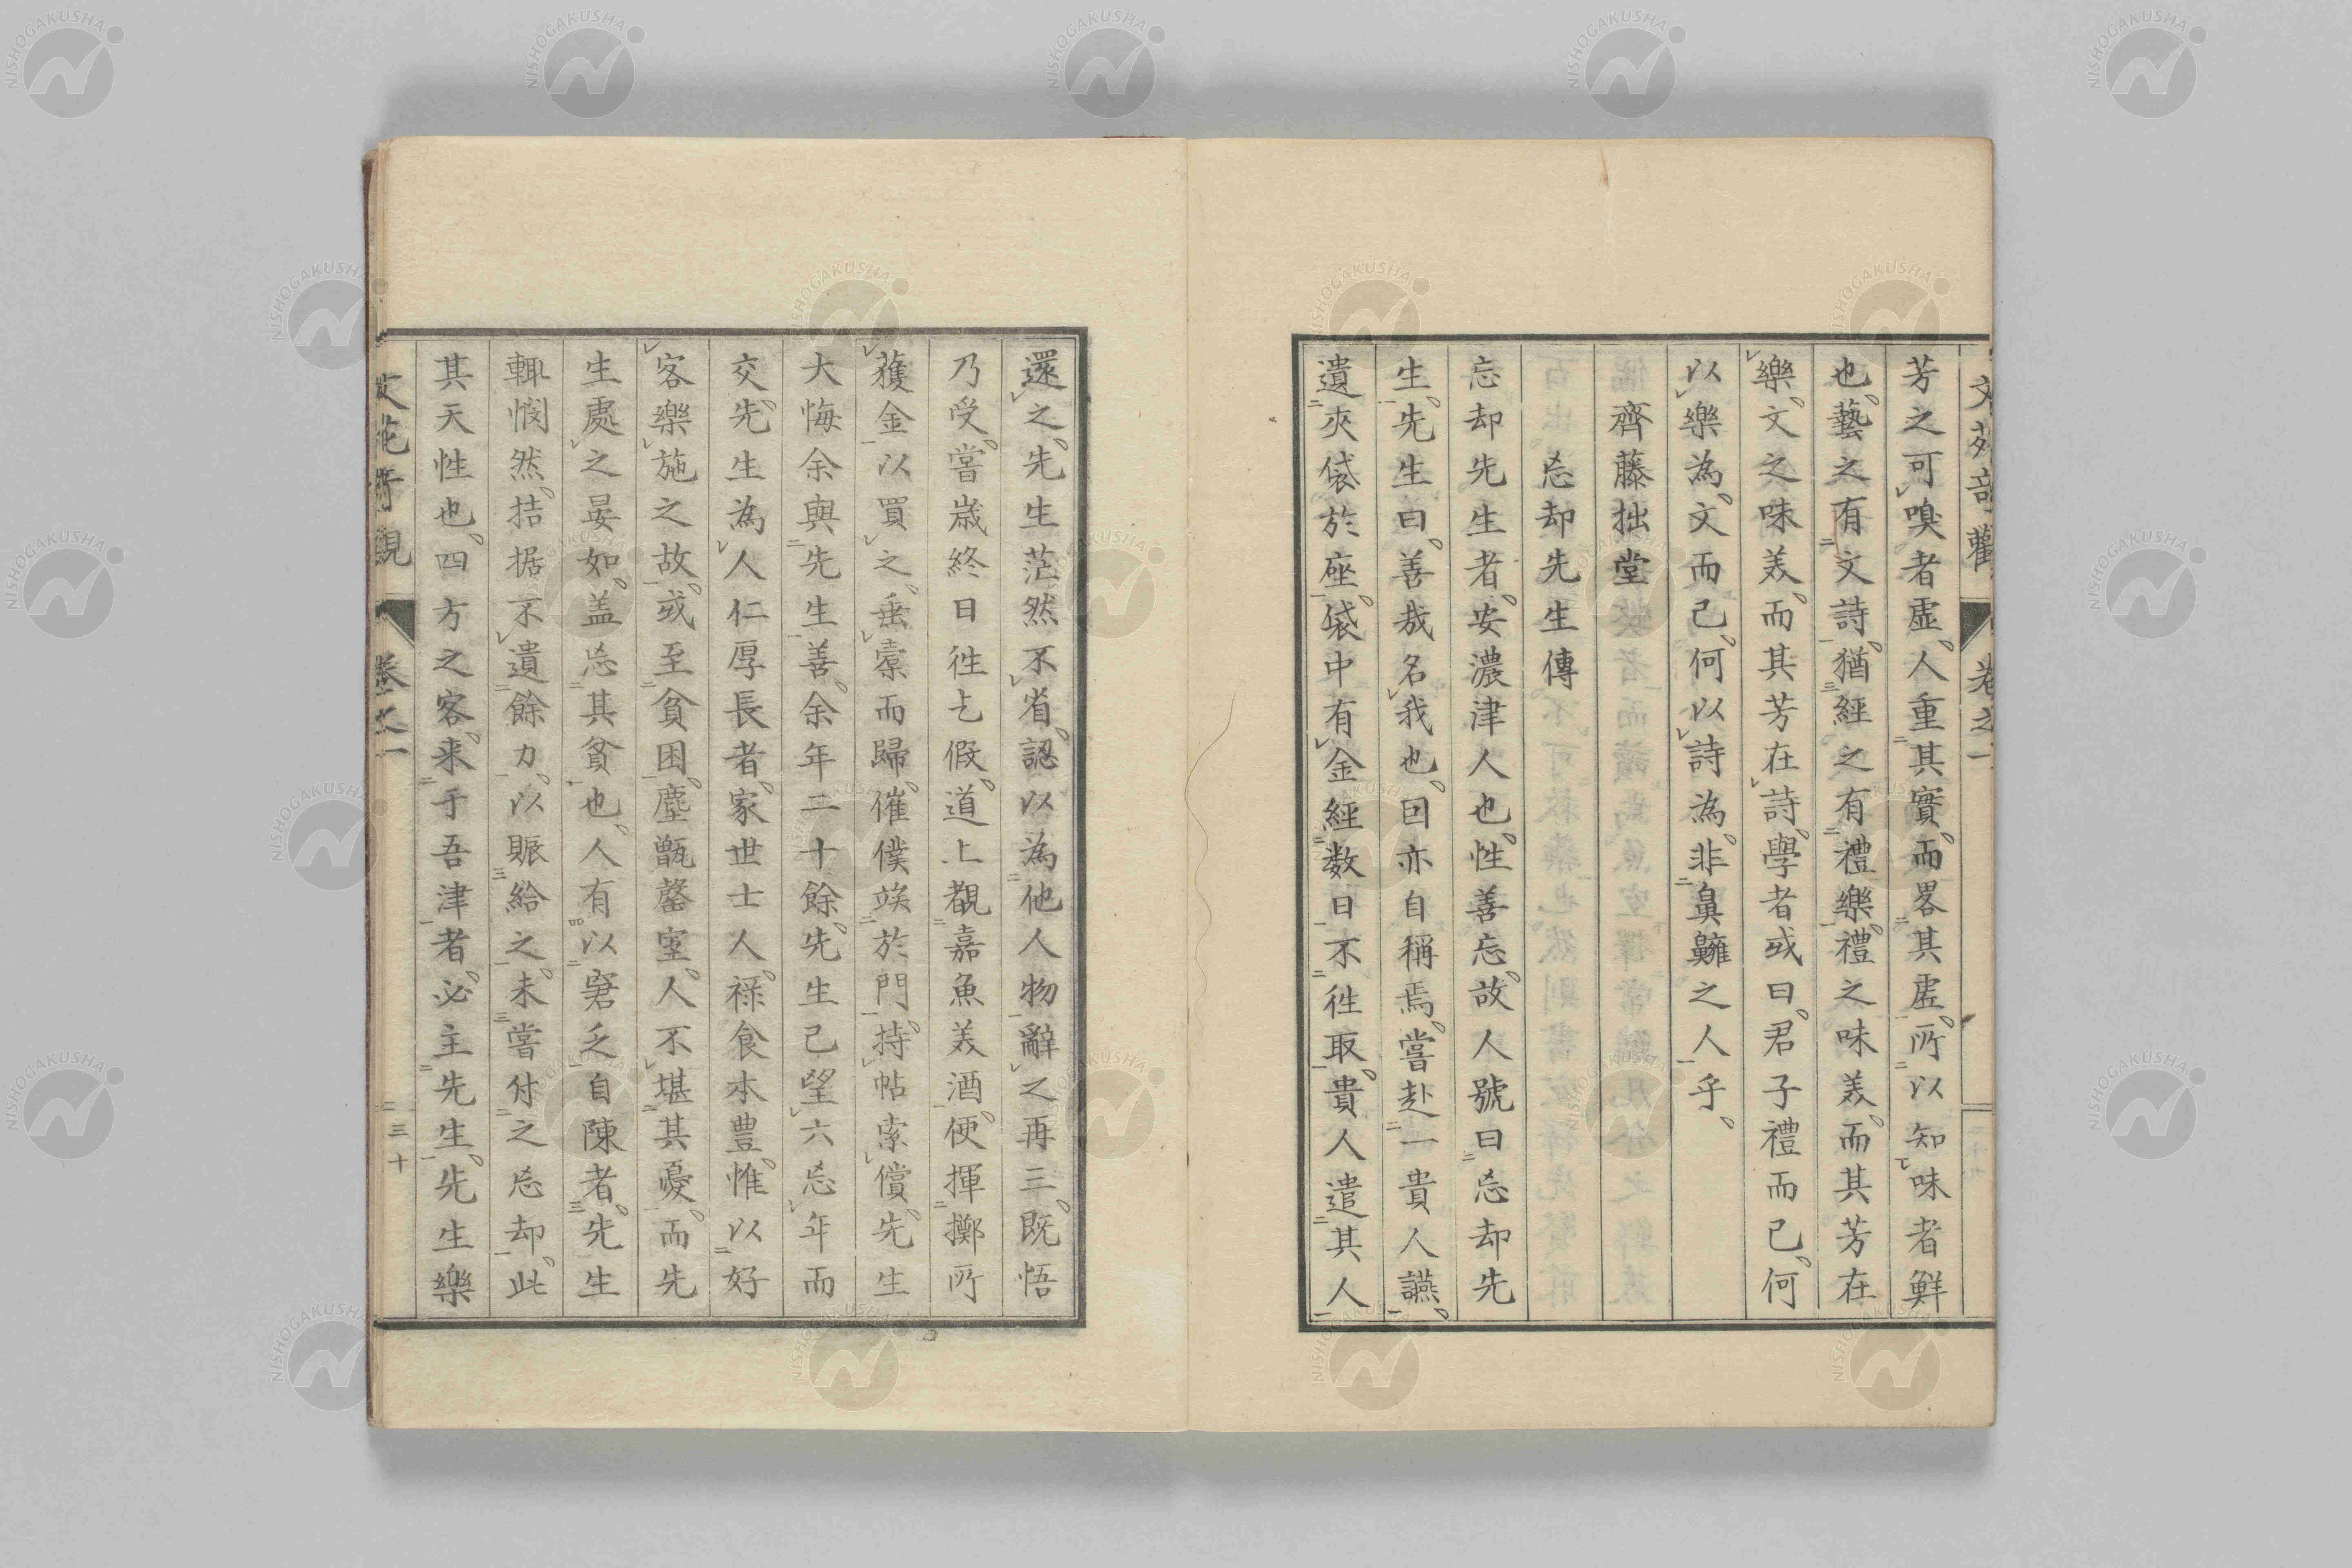 芳之可嗅者虛人重其實而畧其虛所以知味者鮮
也藝之有文詩猶經之有禮樂禮之味美而其芳在
樂文之味美而其芳在詩學者或曰君子禮而已何
以樂為文而已何以詩為非鼻齆之人乎
齊藤拙堂
忘却先生傳
忘却先生者安濃津人也性善忘故人號曰忘却先
生先生曰善哉名我也因亦自稱焉嘗赴一貴人讌
遺夾袋於座袋中有金經数日不徃取貴人遣其人
還之先生茫然不省認以為他人物辭之再三既悟
乃受嘗歳終日徃乞假道上覩嘉魚美酒便揮擲所
獲金以買之垂橐而歸催僕竢於門持帖索償先生
大悔余與先生善余年二十餘先生已望六忘年而
交先生為人仁厚長者家世士人祿食本豊惟以好
客樂施之故或至貧困塵甑罄室人不堪其憂而先
生處之晏如盖忘其貧也人有以窘乏自陳者先生
輙憫然拮据不遺餘力以賑給之未嘗付之忘却此
其天性也四方之客来于吾津者必主先生先生樂
卷之一
三十